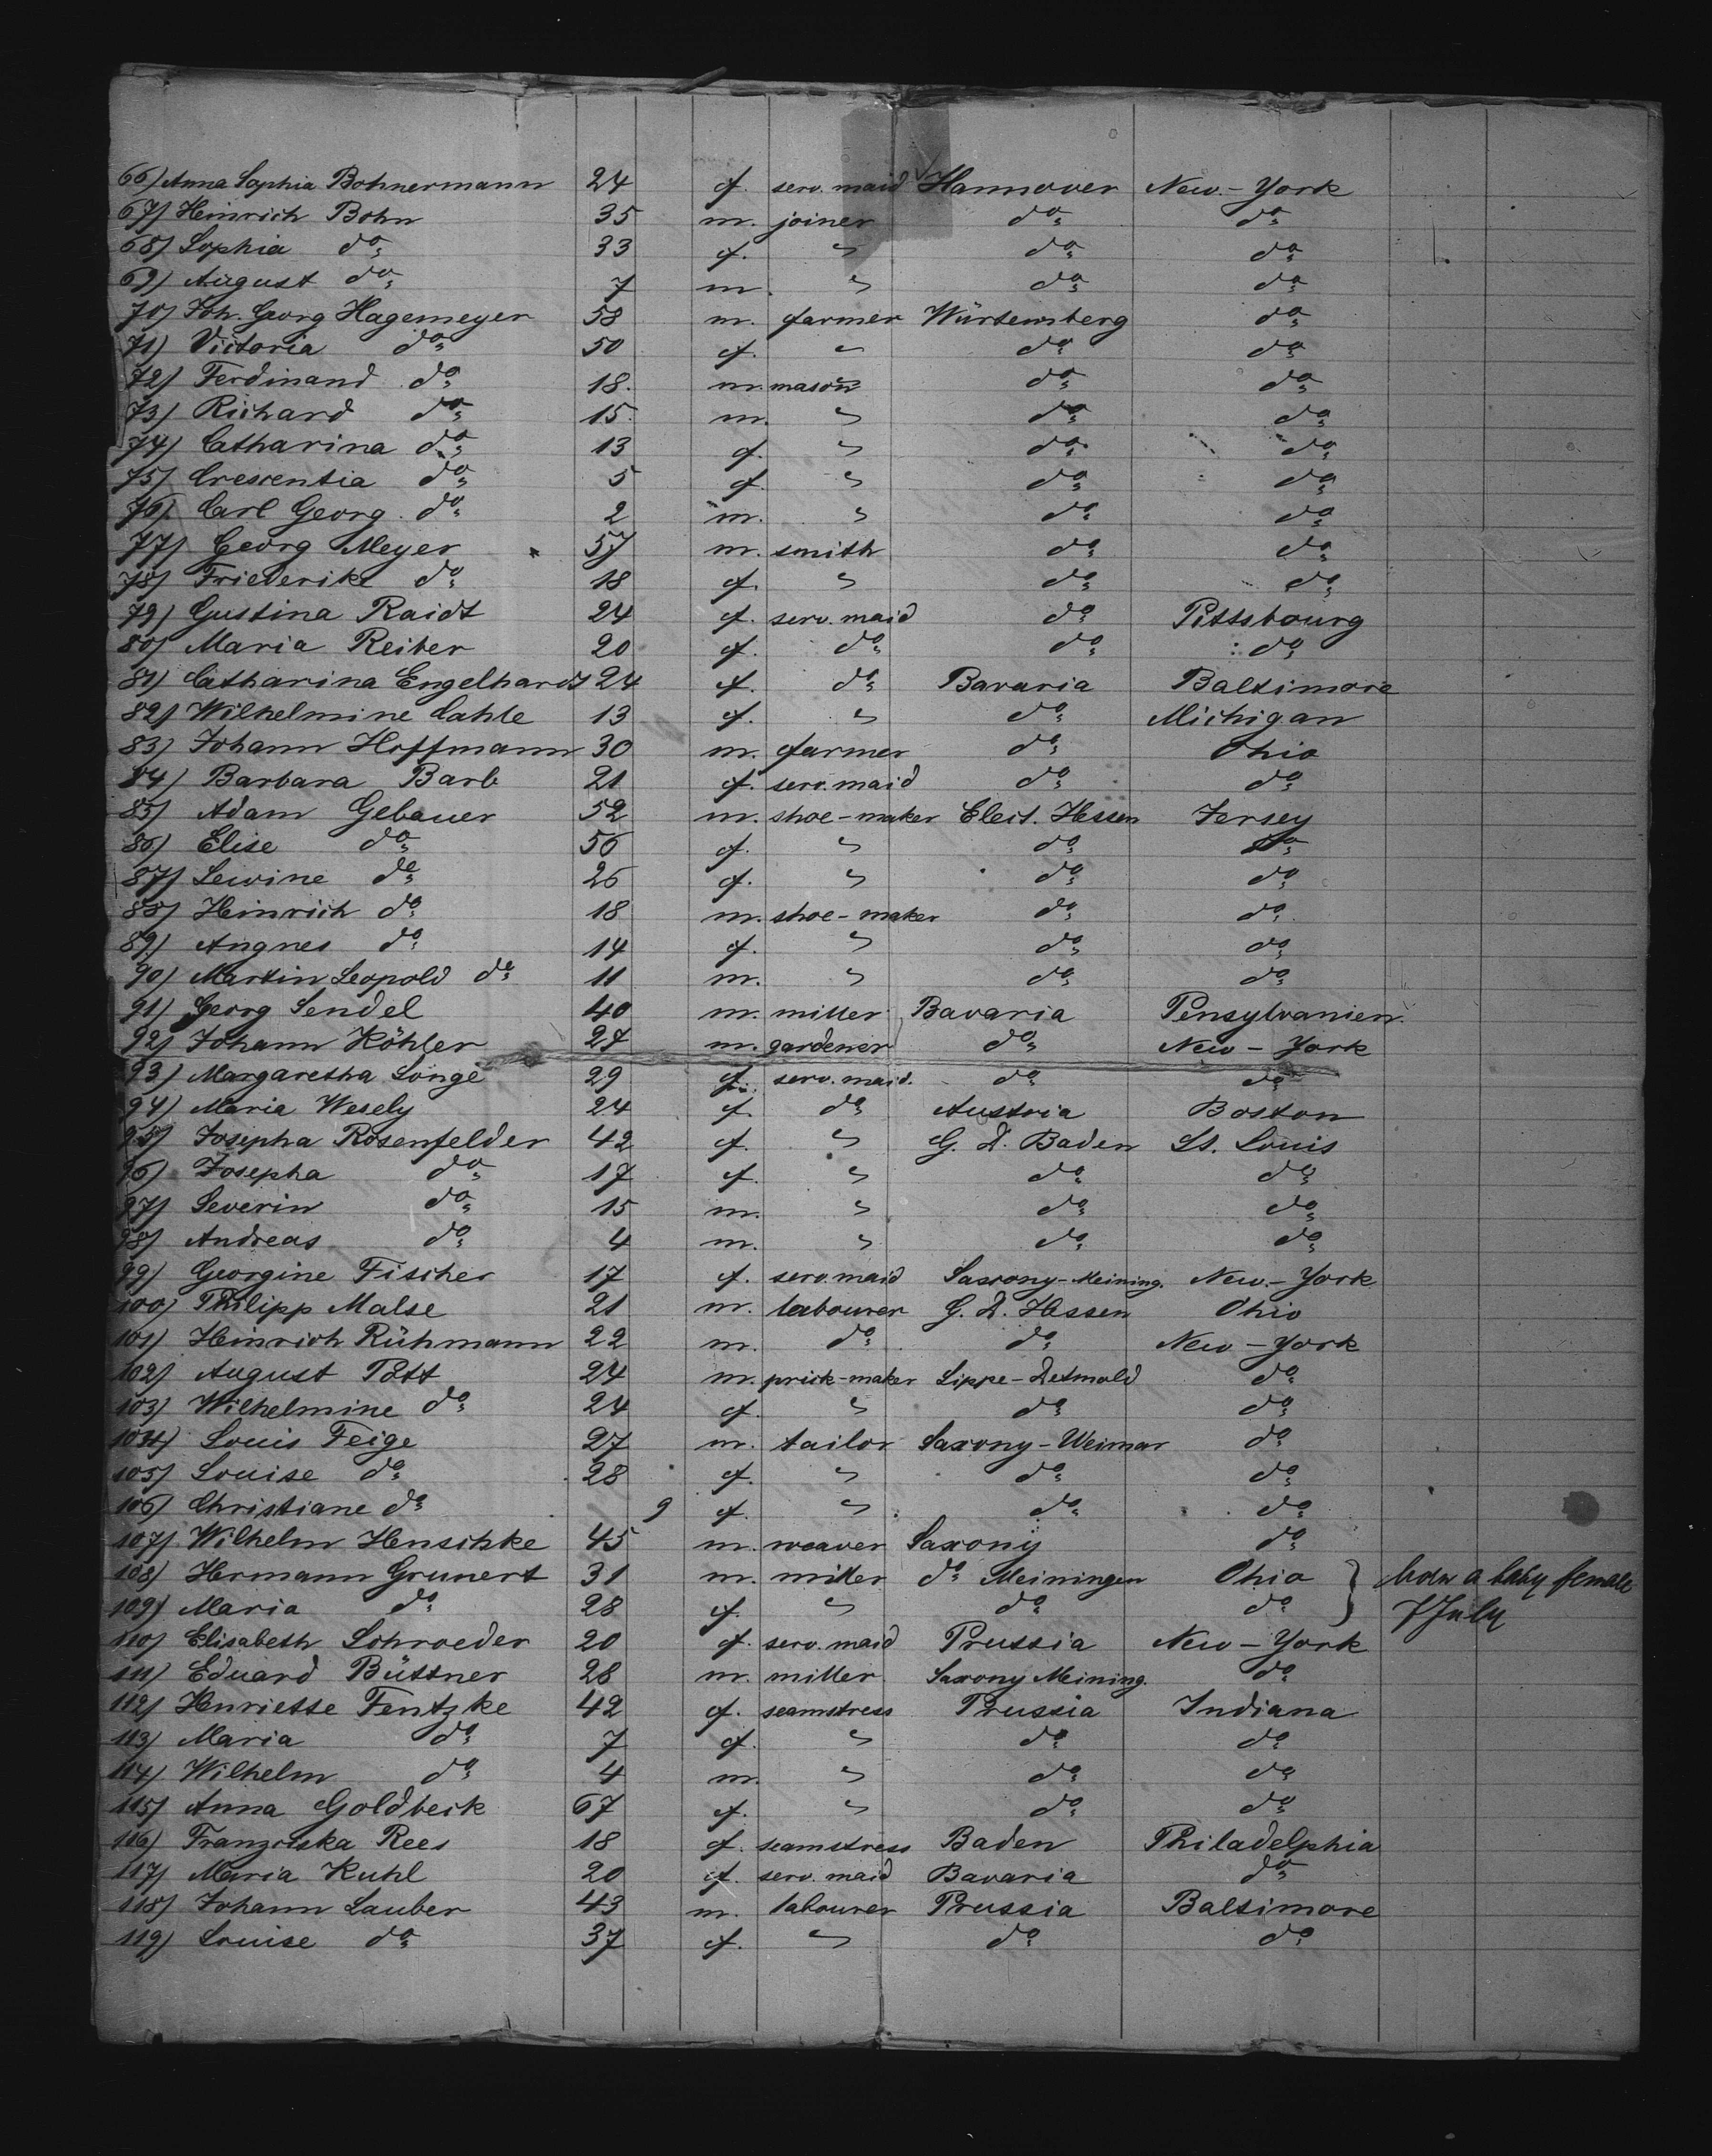 66) Anna Sophia Bohnermann 24 f. serv. maid Hannover New-York
67) Heinrich Bohn 35 m. joiner do do
68) Sophia do 33 f. " do do
69) August do 7 m. " do do
70) Joh. Georg Hagemeyer 58 m. farmer Würtemberg do
71) Victoria do 50 f. " do do
72) Ferdinand do 18. m. mason do do
73) Richard do 15 m. " do do
74) Catharina do 13 f. " do do
75) Crescentia do 5 f. " do do
76) Carl Georg do 2 m. " do do
77) Georg Meyer 57 m. smith do do
78) Friederike do 18 f. " do do
79) Gustina Raidt 24 f. serv. maid do Pittsbourg
80) Maria Reiber 20 f. do do do
81) Catharina Engelhardt 24 f. do Bavaria Baltimore
82) Wilhelmine Cahle 13 f. " do Michigan
83) Johann Hoffmann 30 m. farmer do Ohio
84) Barbara Barb 21 f. serv. maid do do
85) Adam Gebauer 52 m. shoe-maker Elect. Hessen Jersey
86) Elise do 56 f. " do do
87) Lewine do 26 f. " do do
88) Heinrich do 18 m. shoe-maker do do
89) Angnes do 14 f. " do do
90) Martin Leopold do 11 m. " do do
91) Georg Sendel 40 m. miller Bavaria Pensylvanien
92) Johann Köhler 27 m. gardener do New-York
93) Margaretha Longe 29 f. serv. maid. do do
94) Maria Wesely 24 f. do Austria Boston
95) Josepha Rosenfelder 42 f. " G. D. Baden St. Louis
96) Josepha do 17 f. " do do
97) Severin do 15 m. " do do
98) Andreas do 4 m. " do do
99) Georgine Fischer 17 f. serv. maid Saxony-Meining. New-York
100) Philipp Malse 21 m. labourer G. D. Hessen Ohio
101) Heinrich Rühmann 22 m. do do New-York
102) August Pott 24 m. prick-maker Lippe-Detmold do
103) Wilhelmine do 24 f. " do do
104) Louis Feige 27 m. tailor Saxony-Weimar do
105) Louise do 28 f. " do do
106) Christiane do 9 f. " do do
107) Wilhelm Henschke 45 m. weaver Saxony do
108) Hermann Grunert 31 m. miller do Meiningen Ohio } born a baby female
109) Maria do 28 f. " do do 7 July
110) Elisabeth Schroeder 20 f. serv. maid Prussia New-York
111) Eduard Büttner 28 m. miller Saxony Meining. do
112) Henriette Fentzke 42 f. seamstress Prussia Indiana
113) Maria do 7 f. " do do
114) Wilhelm do 4 m. " do do
115) Anna Goldbeck 67 f. " do do
116) Franziska Rees 18 f. seamstress Baden Philadelphia
117) Maria Kuhl 20 f. serv. maid Bavaria do
118) Johann Lauber 43 m. labourer Prussia Baltimore
119) Louise do 37 f. " do do